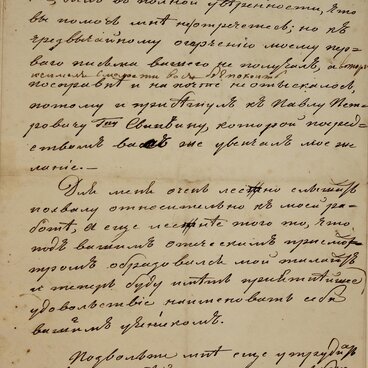 было въ полной увѣренности, что
вы помочь мнѣ не отречетесь; но къ
чрезвычайному огорченію моему пер-
ваго письма вашего не получалъ, а
по справкѣ и на почтѣ не отыскалось,
потому и прибѣгнулъ къ Павлу Пет-
ровичу Свиньину, которой посред-
ствомъ васъ же увѣнчалъ мое же-
ланіе. —
Для меня очень лестно слышать
похвалу относительно къ моей ра-
ботѣ, а еще лестнѣе того то, что
подъ вашимъ отеческимъ присмо-
тромъ образовался мой талантъ
и теперь буду имѣть пріятнѣйшее
удовольствіе наименовать себя
вашимъ ученикомъ.
Подвольте мнѣ еще утрудить